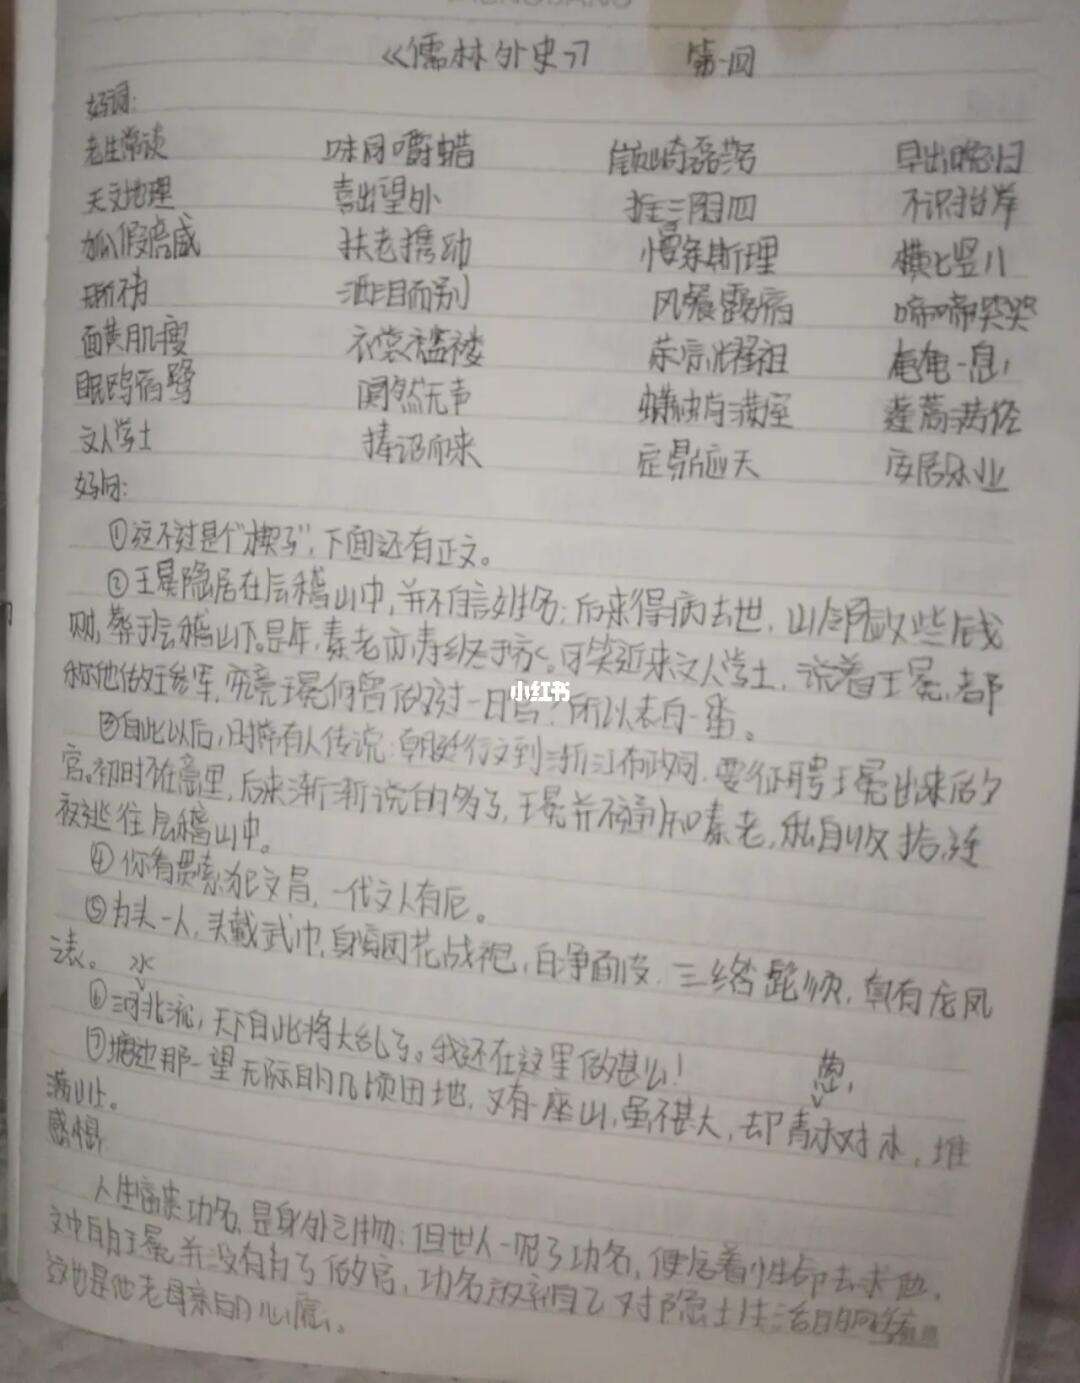 《儒林外史》 第一回
好词:
老生常谈 味同嚼蜡 嵚崎磊落 早出晚归
天文地理 喜出望外 挂三闲四 不识抬举
狐假虎威 扶老携幼 慢条斯理 横七竖八
洒泪而别 风餐露宿 啼啼哭哭
面黄肌瘦 衣裳褴褛 荣宗耀祖 奄奄一息
眠鸥宿鹭 阒然无声 蟏蛸满室 蓬蒿满径
文人学士 捧诏而来 定鼎应天 安居乐业
好句:
①这不过是个“楔子”,下面还有正文。
②王冕隐居在会稽山中,并不自言姓名;后来得病去世,山邻敛些钱
财,葬于会稽山下。是年,秦老亦寿终于家。可笑近来文人学士,说着王冕,都
称他做王参军,究竟王冕何曾做过一日官?所以表白一番。
③自此以后,时常有人传说:朝廷行文到浙江布政司,要征聘王冕出来做
官。初时不在意里,后来渐渐说的多了,王冕并不通知秦老,私自收拾,连
夜逃往会稽山中。
④你看贯索犯文昌,一代文人有厄。
⑤为头一人,头戴武巾,身穿团花战袍,白净面皮,三绺髭须,真有龙凤
之表。 水
⑥河北流,天下自此将大乱了。我还在这里做甚么!
⑦塘边那一望无际的几顷田地,又有一座山,虽不甚大,却青 对水,堆
葱,
满山上。
感悟:
人生富贵功名,是身外之物;但世人一见了功名,便舍着性命去求他,
文中的王冕并没有为了做官,功名放弃自己对隐士生活的
这也是他老母亲的心愿。
小红书